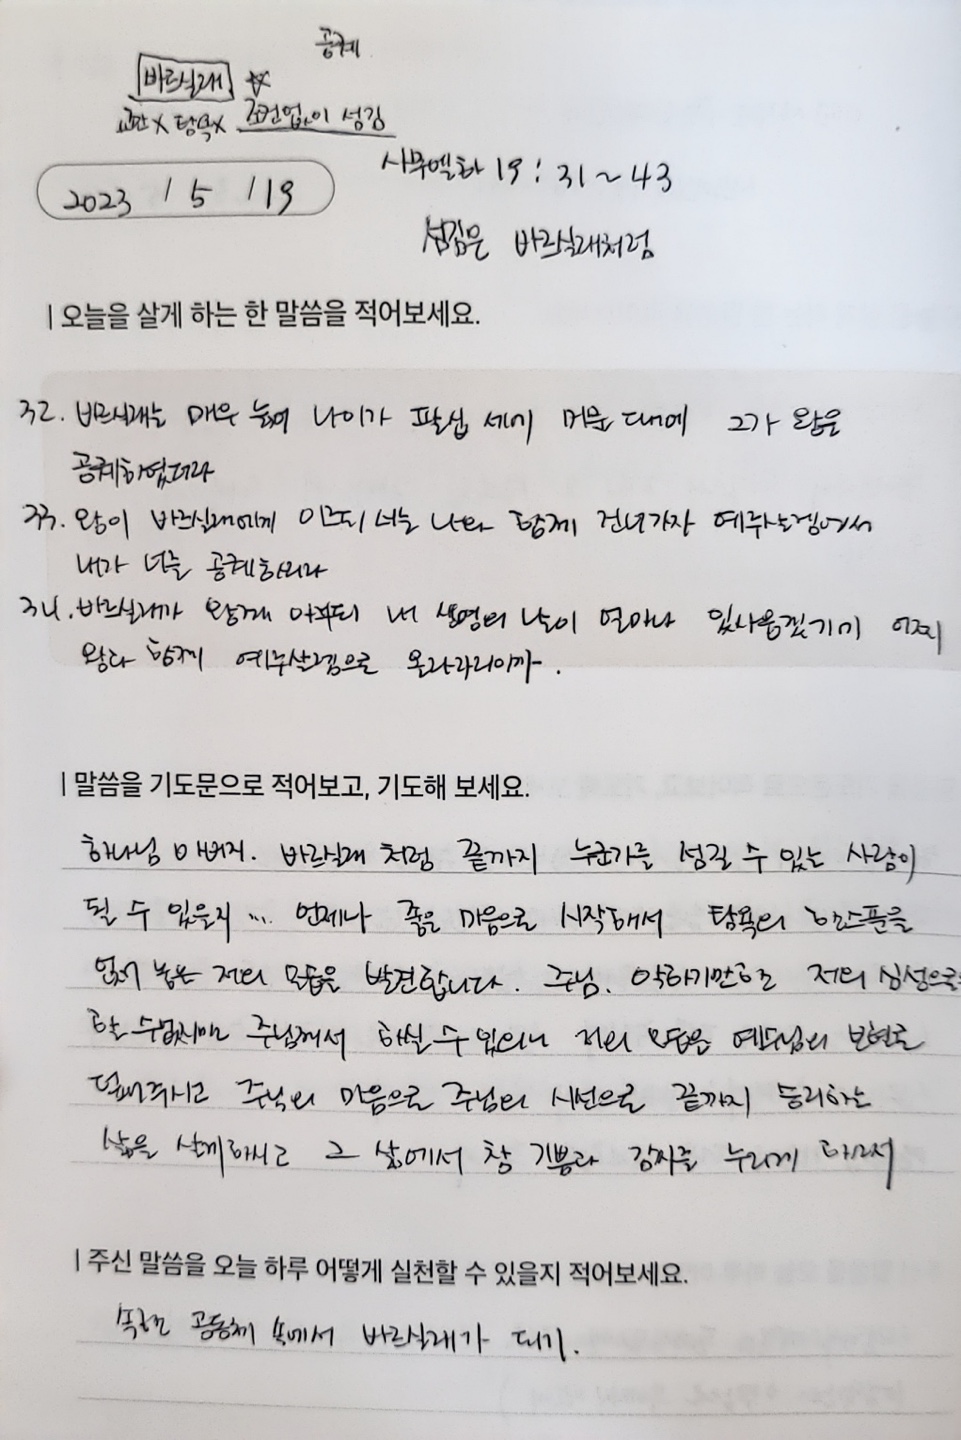 공궤
바르실래 ☆
교만X 탐욕X 조건없이 섬김
2023 / 5 / 19
사무엘하 19 : 31 ~ 43
섬김은 바르실래처럼
| 오늘을 살게 하는 한 말씀을 적어보세요.
32. 바르실래는 매우 늙어 나이가 팔십 세라 머문 때에 그가 왕을
공궤하였더라
33. 왕이 바르실래에게 이르되 너는 나와 함께 건너가자 예루살렘에서
내가 너를 공궤하리라
34. 바르실래가 왕께 아뢰되 내 생명의 날이 얼마나 있사옵겠기에 어찌
왕과 함께 예루살렘으로 올라가리이까.
| 말씀을 기도문으로 적어보고, 기도해 보세요.
하나님 아버지. 바르실래 처럼 끝까지 누군가를 섬길 수 있는 사람이
될 수 있을지 ... 언제나 좋은 마음으로 시작해서 탐욕의 한스푼을
얹어 놓은 저의 모습을 발견합니다. 주님. 악하기만한 저의 심성으로
할 수없지만 주님께서 하실 수 있으니 저의 모습을 예수님의 보혈로
덮어주시고 주님의 마음으로 주님의 시선으로 끝까지 승리하는
삶을 살게하시고 그 삶에서 참 기쁨과 감사를 누리게 하소서
| 주신 말씀을 오늘 하루 어떻게 실천할 수 있을지 적어보세요.
속한 공동체 속에서 바르실래가 되기.